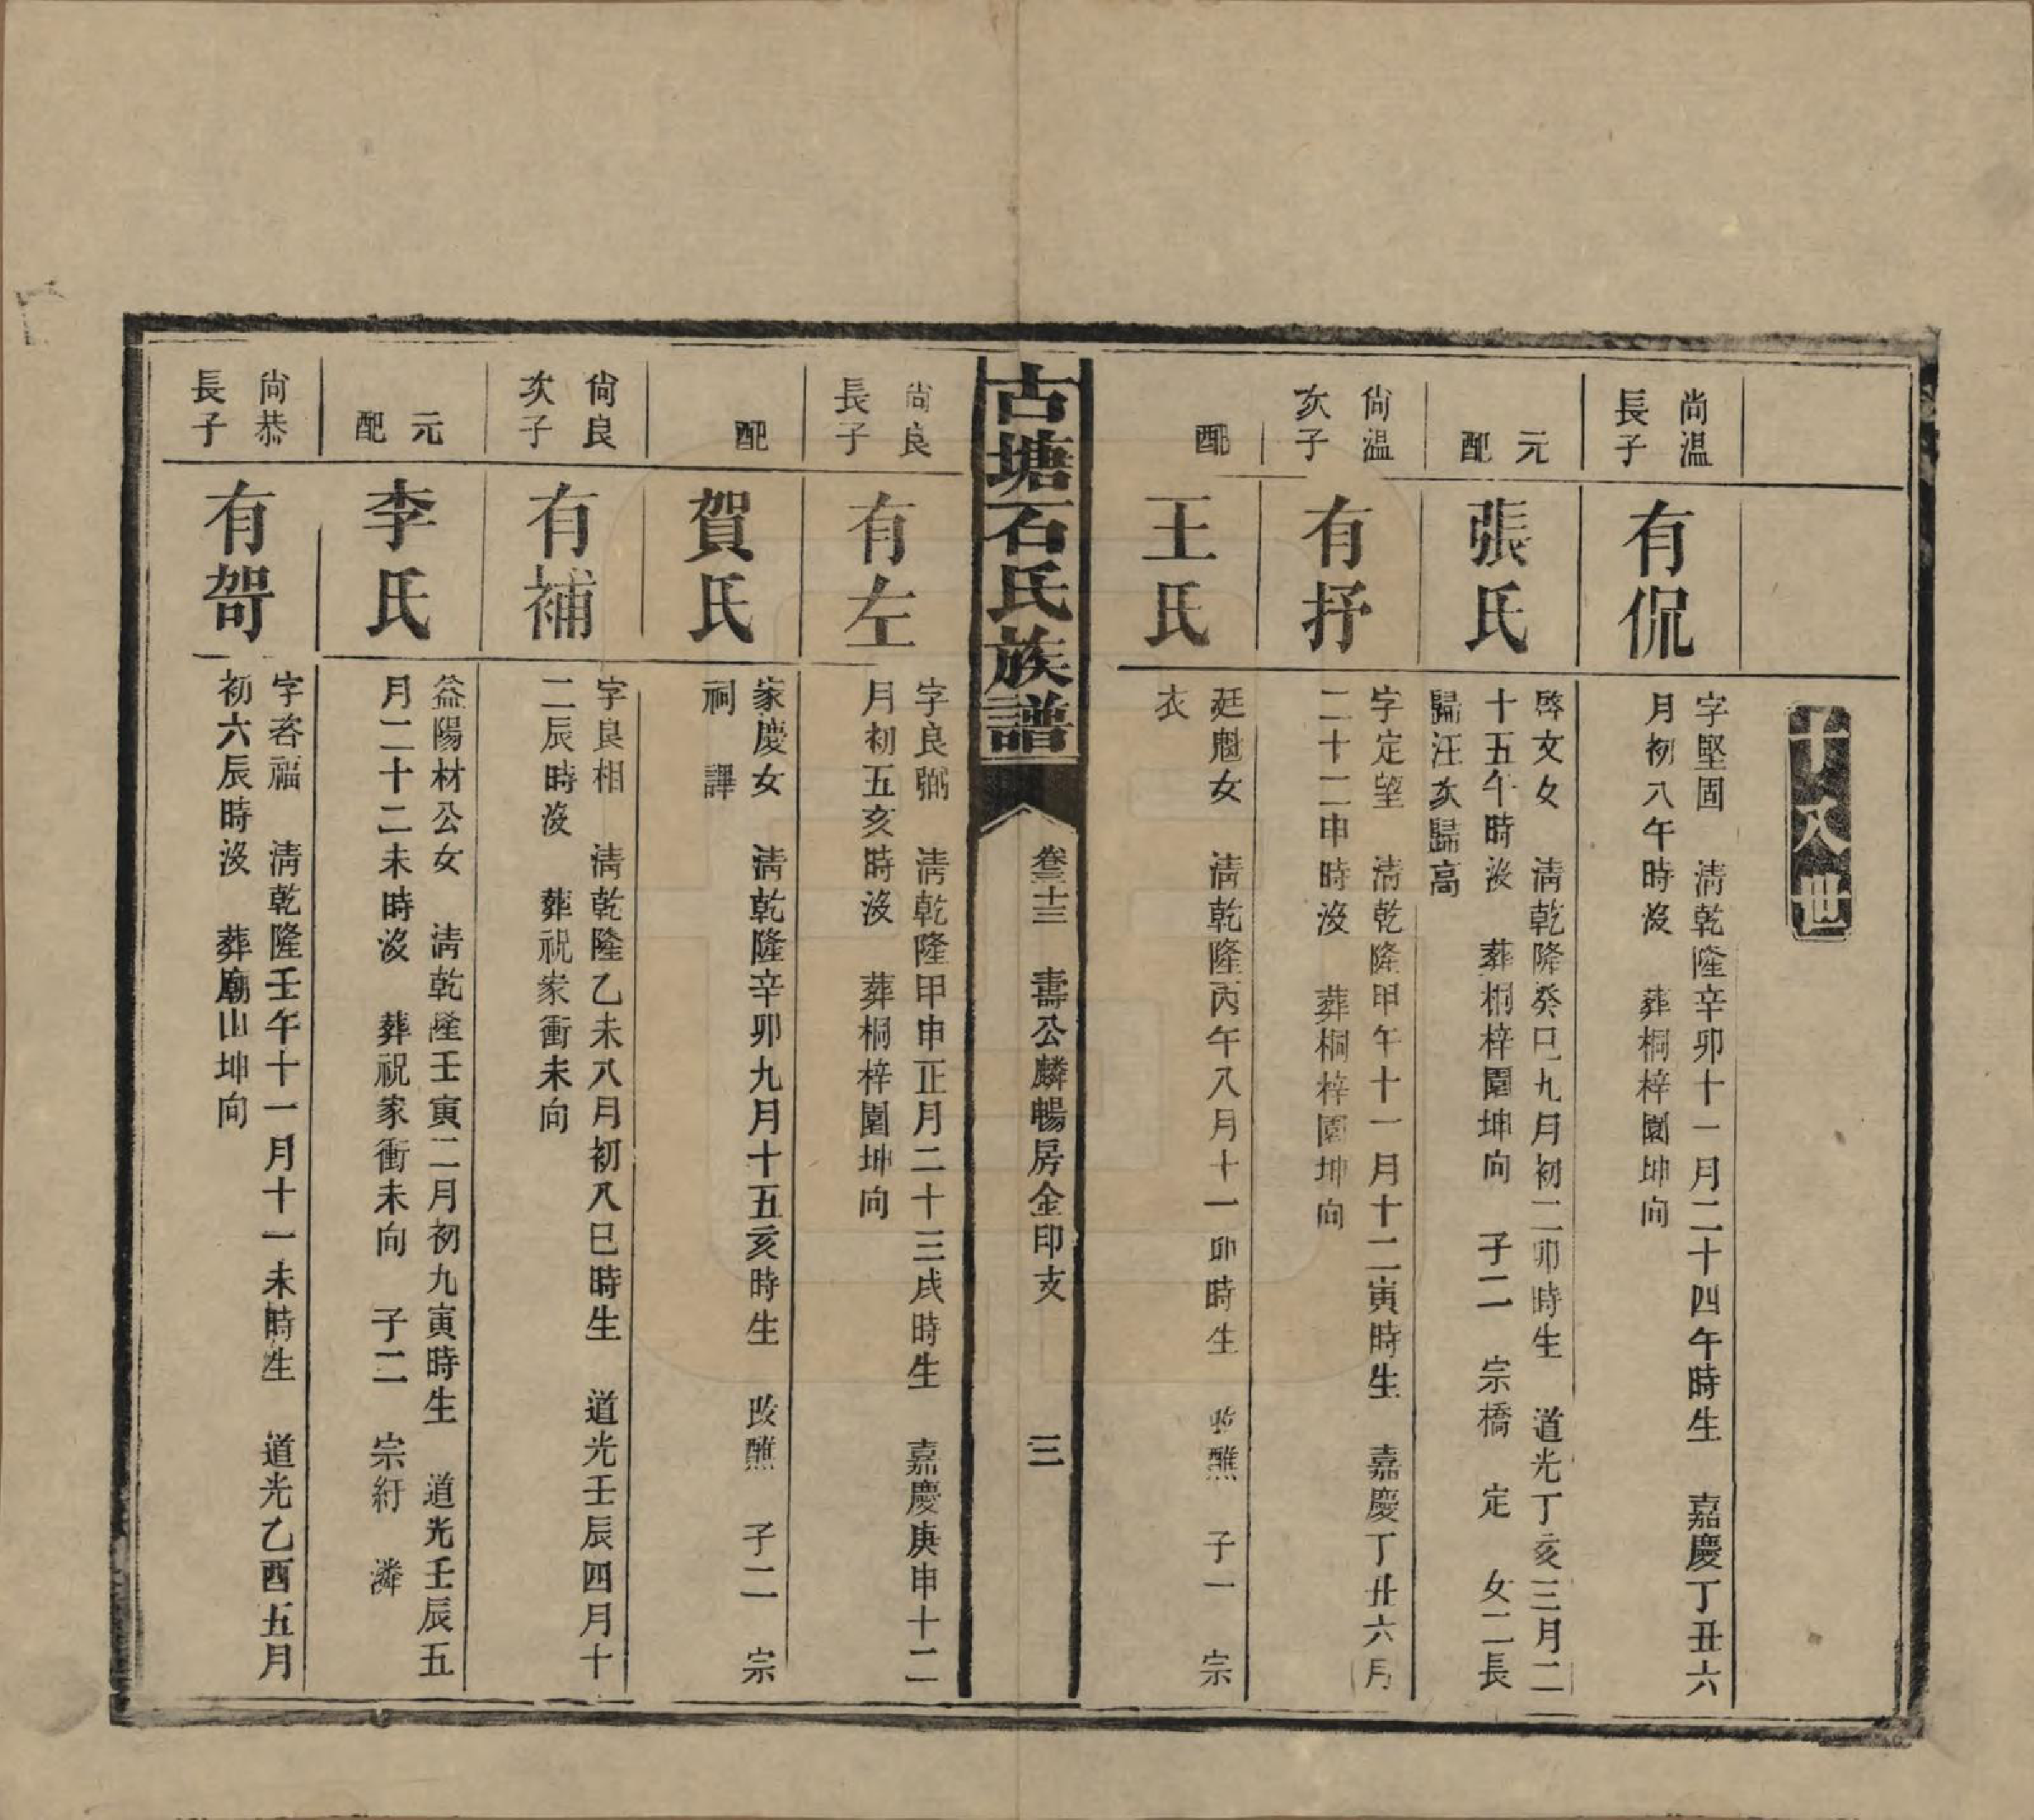 十八世
尚温
長子
有侃
字堅固　清乾隆辛卯十一月二十四午時生　嘉慶丁丑六
月初八午時沒　葬桐梓園坤向
元
配
張氏
啓文女　清乾隆癸巳九月初二卯時生　道光丁亥三月二
十五午時沒　葬桐梓園坤向　子二　宗橋　定　女二長
歸汪次歸高
尚温
次子
有抒
字定望　清乾隆甲午十一月十二寅時生　嘉慶丁丑六月
二十二申時沒　葬桐梓園坤向
配
王氏
廷魁女　清乾隆丙午八月十一卯時生　改醮　子一　宗
衣
古塘石氏族譜
卷三十三　壽公麟暢房金印支　三
尚良
長子
有左
字良弼　清乾隆甲申正月二十三戌時生　嘉慶庚申十二
月初五亥時沒　葬桐梓園坤向
配
賀氏
家慶女　清乾隆辛卯九月十五亥時生　改醮　子二　宗
祠　譁
尚良
次子
有補
字良相　清乾隆乙未八月初八巳時生　道光壬辰四月十
二辰時沒　葬祝家衝未向
元
配
李氏
益陽材公女　清乾隆壬寅二月初九寅時生　道光壬辰五
月二十二未時沒　葬祝家衝未向　子二　宗紆　潾
尚恭
長子
有哿
字吝福　清乾隆壬午十一月十一未時生　道光乙酉五月
初六辰時沒　葬廟山坤向